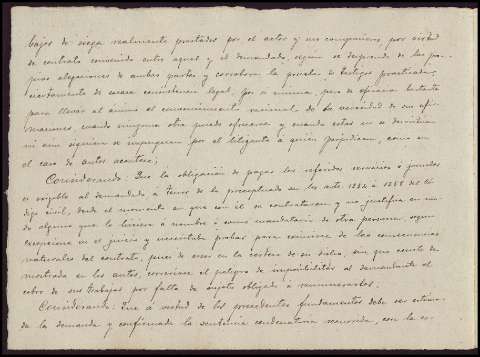 bajos de siega realmente prestados por el actor y sus compañeros, por virtud
de contrato convenido entre aquel y el demandado, según se desprende de las pro-
pias alegaciones de ambas partes y corrobora la prueba de testigos practicada,
ciertamente de escasa consistencia legal, por si misma, pero de eficacia bastante
para llevar al ánimo el convencimiento racional de la veracidad de sus afir-
maciones, cuando ninguna otra puede ofrecerse y cuando estas no se desvirtúan
ni aun siquiera se impugnan por el litigante á quien perjudican, como en
el caso de autos acontece;
Considerando: Que la obligación de pagar los referidos servicios ó jornales
es exigible al demandado á tenor de lo preceptuado en los arts 1254 á 1258 del Có-
digo civil, desde el momento en que con él se contrataron y no justifica en mo-
do alguno que lo hiciera á nombre ó como mandatario de otra persona, según
excepciona en el juicio y necesitaba probar para eximirse de las consecuencias
naturales del contrato, pues de creer en la certeza de su dicho, sin que resulte de-
mostrada en los autos, correríase el peligro de imposibilitar al demandante el
cobro de sus trabajos por falta de sujeto obligado á remunerarlos.
Considerando: Que á virtud de los precedentes fundamentos debe ser estima-
da la demanda y confirmada la sentencia condenatoria recurrida, con la es-